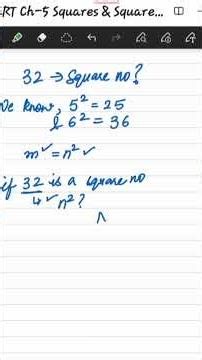 RT Ch-5 Squares & Square...
32 → Square no?
We know, 5² = 25
& 6² = 36
m = n²
if 32 is a square no
4 n²?